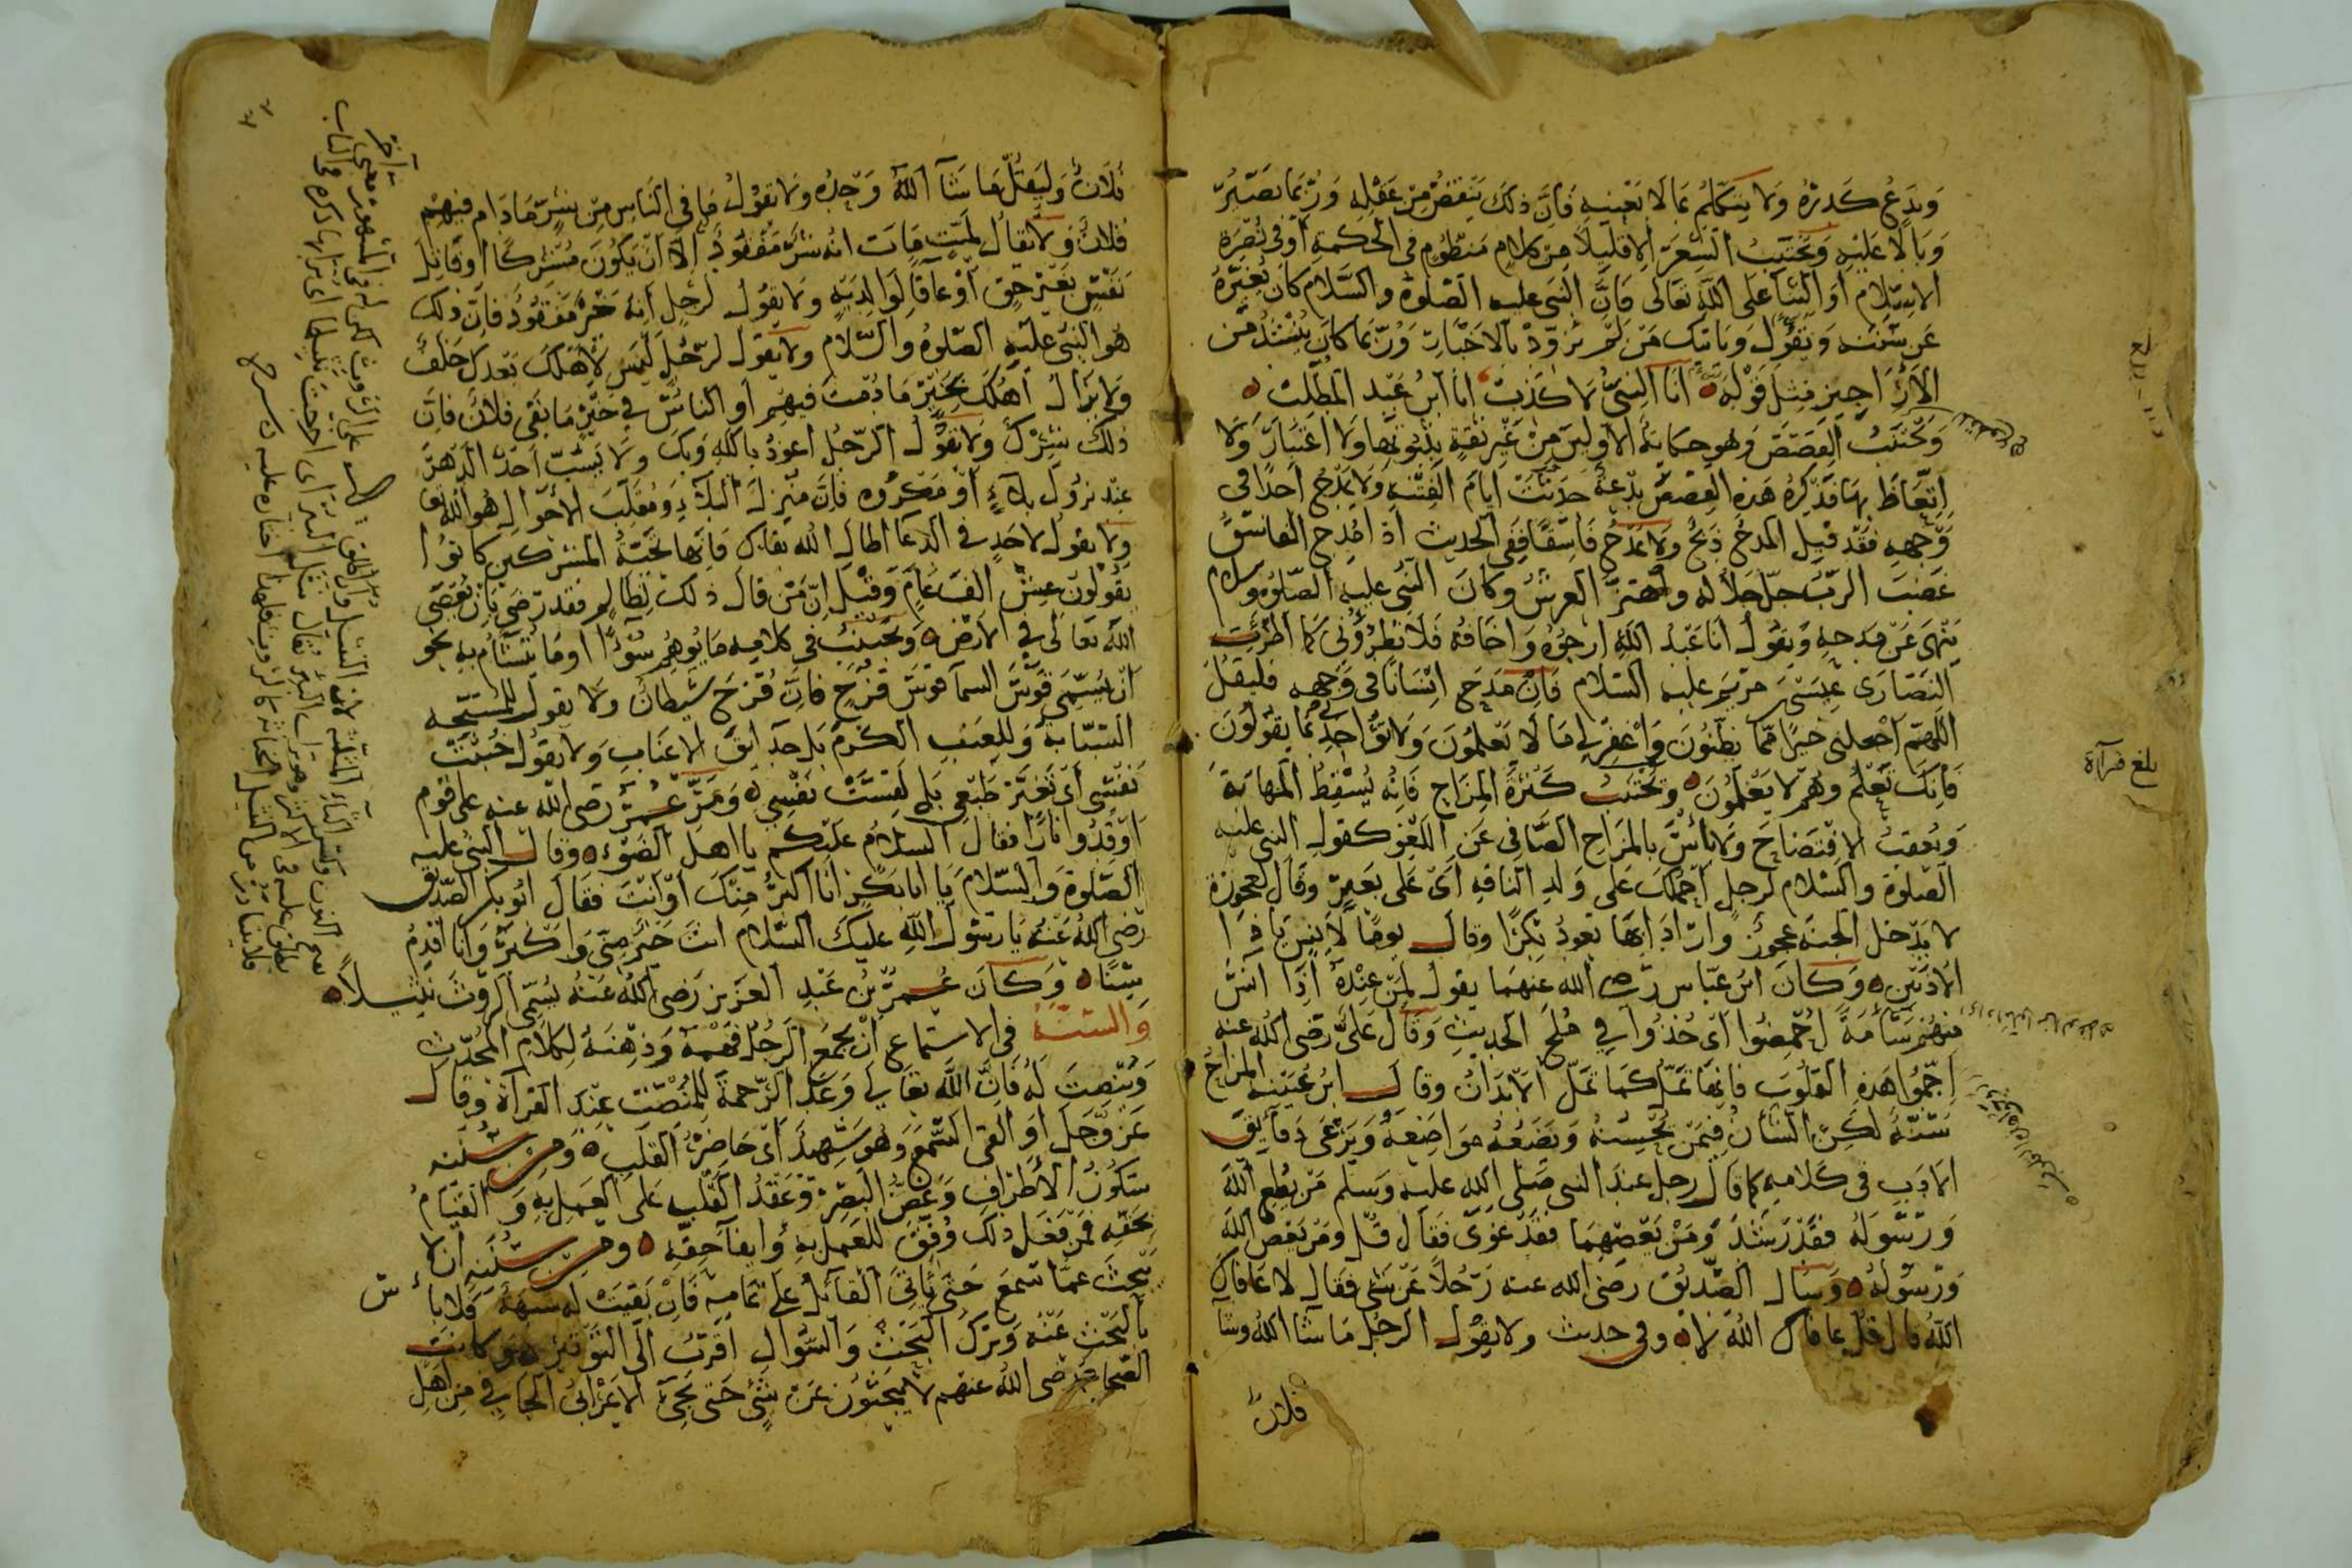 وَيَدَعُ كَدَرَهُ وَلا يَتَكَلَّمُ بِمَا لَا يَعْنِيهِ فَاِنَّ ذلِكَ يَنْقُصُ مِنْ عَقْلِهِ وَرُبَّمَا يَصِيرُ
وَبَالًا عَلَيْهِ وَيَجْتَنِبُ الشِّعْرَ اِلا قَلِيلًا مِنْ كَلامٍ مَنْظُومٍ فِي الْحِكْمَةِ اَوْ فِي نُصْرَةِ
الاِسْلامِ اَوِ الثَّنَاءِ عَلَى اللهِ تَعَالَى فَاِنَّ النَّبِى عليه الصَّلوة والسَّلام كَانَ يُغَيِّرُهُ
عَن سَنَنِه وَيَقُولُ وَيَاتِيك مَنْ لَمْ تُزَوِّدْ بِالاَخْبَارِ وَرُبَّمَا كَانَ يُنْشِدُ مِنَ
الاَرَاجِيزِ مِثْلَ قَوْلِه اَنَا النَّبِىُّ لا كَذِبْ اَنَا ابْنُ عَبْدِ الْمُطَّلِبْ
وَيَجْتَنِبُ القَصَصَ وَهو حِكَايَةُ الاَوَّلِينَ مِنْ غَيْرِ ثِقَةٍ بِثُبُوتِهَا وَلا اعْتِبَارَ وَلا
اتِّعَاظَ بِهَا فَذِكْرُهُ هَذِهِ القِصَصَ بِدْعَةٌ حَدَثَتْ اَيَّامَ الْفِتْنَةِ وَلا يَمْدَحُ اَحَدًا فِي
وَجْهِهِ فَقَدْ قِيلَ الْمَدْحُ ذَبْحٌ وَلا يَمْدَحُ فَاسِقًا فَفِي الْحَدِيثِ اذَا مُدِحَ الْفَاسِقُ
غَضِبَ الرَّبُّ جَلَّ جَلَالُه وَاهْتَزَّ الْعَرْشُ وَكَانَ النَّبِىُّ عليه الصَّلوة والسلام
يَنْهَى عَنْ مَدْحِهِ وَيَقُولُ اَنَا عَبْدُ اللهِ اَرْجُوهُ وَاَخَافُهُ فَلَا تُطْرُونِى كَمَا اَطْرَتِ
النَّصَارَى عِيسَى بنَ مَرْيَمَ عليه السلام فَاِنْ مَدَحَ اِنْسَانًا فِى وَجْهِهِ فَلْيَقُلْ
اللَّهُمَّ اجْعَلنِى خَيْرًا مِمَّا يَظُنُّونَ وَاغْفِرْ لِى مَا لَا يَعْلَمُونَ وَلا تُؤَاخِذْنِى بِمَا يَقُولُونَ
فَاِنَّكَ تَعْلَمُ وَهُمْ لا يَعْلَمُونَ وَيَجْتَنِبُ كَثْرَةَ الْمِزَاحِ فَاِنَّهُ يُسْقِطُ الْمَهَابَةَ
وَيُعْقِبُ الاِفْتِضَاحَ وَلا بَأْسَ بِالْمِزَاحِ الصَّافِى عَنِ اللَّغْوِ كَقَوْلِ النَّبِى عليه
الصَّلوة والسَّلام لِرَجُلٍ اَحْمِلُكَ عَلَى وَلَدِ النَّاقَةِ اَىْ عَلَى بَعِيرٍ وَقَالَ لِعَجُوزَةٍ
لا يَدْخُل الْجَنَّة عَجُوز وَارَادَ اَنَّهَا تَعُودُ بِكْرًا وَقَالَ يَوْمًا لِاَنَسٍ يَا ذَا
الاُذُنَيْنِ وَكَانَ ابْنُ عَبَّاس رضى الله عنهما يَقُولُ لِمَنْ عِنْدَهُ اِذَا آنَسَ
مِنْهُمْ سَآمَةً اَحْمِضُوا اَىْ خُذُوا فِي مُلَحِ الْحَدِيثِ وَقَالَ عَلِىٌّ رضى الله عنه
اَجِمُّوا هَذِهِ الْقُلُوبَ فَاِنَّهَا تَمَلُّ كَمَا تَمَلُّ الاَبْدَانُ وَقَالَ ابْنُ عُيَيْنَةَ الْمِزَاحُ
سُنَّةٌ لَكِنِ الشَّأْنُ فِيمَنْ يُحْسِنُهُ وَيَضَعُهُ مَوَاضِعَهُ وَيَرْعَى دَقَائِقَ
الاَدَبِ فِى كَلامِهِ كَمَا قَالَ رَجُل عِنْدَ النبى صَلَّى الله عليه وَسلم مَنْ يُطِعِ اللهَ
وَرَسُولَهُ فَقَدْ رَشَدَ وَمَنْ يَعْصِهِمَا فَقَدْ غَوَى فَقَالَ قُلْ وَمَنْ يَعْصِ اللهَ
وَرَسُولَهُ وَسَأَلَ الصِّدِّيقُ رَضى الله عنه رَجُلًا عَنْ شَىء فَقَالَ لا عَافَاكَ
اللهُ قال قُلْ عَافَاكَ اللهُ لا وفى حديث وَلا يَقُولُ الرَّجُلُ مَا شَاءَ اللهُ وَشَاءَ
فلانٌ
بلغ قرآة
فُلَانٌ وَلْيَقُلْ مَا شَآءَ اللهُ وَحْدَهُ وَلَا يَقُولُ مَا فِى النَّاسِ مِنْ شَرٍّ مَا دَامَ فِيهِمْ
فُلَانٌ وَلَا يُقَالُ لِمَيِّتٍ مَاتَ اِنَّهُ شَرٌّ مَفْقُودٌ اِلَّا اَنْ يَكُونَ مُشْرِكًا اَوْ قَاتِلَ
نَفْسٍ بِغَيْرِ حَقٍّ اَوْ عَاقًّا لِوَالِدَيْهِ وَلَا يَقُولُ لِرَجُلٍ اِنَّهُ خَيْرٌ مَفْقُودٌ فَاِنَّ ذلِكَ
هُوَ النَّبِى عليه الصَّلوة والسَّلام وَلَا يَقُولُ لِرَجُلٍ لَيْسَ لِاَهْلِكَ بَعْدَكَ خَلَفٌ
وَلَا يَزَالُ اَهْلُكَ بِخَيْرٍ مَا دُمْتَ فِيهِمْ اَوِ النَّاسُ فِى خَيْرٍ مَا بَقِىَ فُلَانٌ فَاِنَّ
ذَلِكَ شِرْكٌ وَلَا يَقُولُ الرَّجُلُ اَعُوذُ بِاللهِ وَبِكَ وَلَا يَسُبُّ اَحَدٌ الدَّهْرَ
عِنْدَ نُزُولِ بَلَاءٍ اَوْ مَكْرُوهٍ فَاِنَّ مُنْزِلَ الْبَلَاءِ وَمُقَلِّبَ الاَحْوَالِ هُوَ اللهُ تعالى
وَلَا يَقُولُ لِاَحَدٍ فِى الدُّعَاءِ اَطَالَ اللهُ بَقَاكَ فَاِنَّهَا تَحِيَّةُ الْمُشْرِكِينَ كَانُوا
يَقُولُونَ عِشْ اَلْفَ عَامٍ وَقِيلَ اِنَّ مَنْ قَالَ ذَلِكَ لِظَالِمٍ فَقَدْ رَضِىَ بِاَنْ يُعْصَى
اللهُ تَعَالَى فِى الاَرْضِ وَيَجْتَنِبُ فِى كَلَامِهِ مَا يُوهِمُ سُوْءًا اَوْ مَا يُتَشَاءَمُ بِهِ نَحْو
اَنْ يُسَمِّىَ قَوْسَ السَّمَاءِ قَوْسَ قُزَحٍ فَاِنَّ قُزَحَ شَيْطَانٌ وَلَا يَقُولُ لِلْمُسَبِّحَةِ
السَّبَّابَةَ وَلِلْعِنَبِ الْكَرْمَ بَلْ حَدَائِقَ الاَعْنَابِ وَلَا يَقُولُ خَبُثَتْ
نَفْسِى اَىْ تَغَيَّرَ طَبْعِى بَلْ لَقِسَتْ نَفْسِى وَمَرَّ عُمَرُ رَضى الله عنه عَلَى قَوْمٍ
اَوْقَدُوا نَارًا فَقَالَ السَّلَامُ عَلَيْكُمْ يَا اَهْلَ الضَّوْءِ وَقَالَ النَّبِىُّ عليه
الصَّلوة والسَّلام يَا اَبَا بَكْرٍ اَنَا اَكْبَرُ مِنْكَ اَوْ اَنْتَ فَقَالَ اَبُو بَكْرٍ الصِّدِّيقُ
رَضِىَ اللهُ عَنْهُ يَا رَسُولَ اللهِ عَلَيْكَ السَّلَامُ اَنْتَ خَيْرٌ مِنِّى وَاَكْبَرُ وَاَنَا اَقْدَمُ
سِنًّا وَكَانَ عُمَرُ بْنُ عَبْدِ الْعَزِيزِ رَضِىَ اللهُ عَنْهُ يُسَمِّى الرَّوْثَ نَثِيلًا
وَالسُّنَّةُ فِى الاِسْتِمَاعِ اَنْ يَجْمَعَ الرَّجُلُ فَهْمَهُ وَذِهْنَهُ لِكَلَامِ الْمُحَدِّثِ
وَيُنْصِتَ لَهُ فَاِنَّ اللهَ تَعَالَى وَعَدَ الرَّحْمَةَ لِلْمُنْصِتِ عِنْدَ الْقِرَآءَةِ وَقَالَ
عَزَّ وَجَلَّ اَوْ اَلْقَى السَّمْعَ وَهُوَ شَهِيدٌ اَىْ حَاضِرُ الْقَلْبِ وَمِنْ سُنَنِهِ
سُكُونُ الاَطْرَافِ وَغَضُّ الْبَصَرِ وَعَقْدُ الْقَلْبِ عَلَى الْعَمَلِ بِهِ وَالْقِيَامُ
بِحَقِّهِ فَمَنْ فَعَلَ ذَلِكَ وُفِّقَ لِلْعَمَلِ بِهِ وَايفَآءِ حَقِّهِ وَمِنْ سُنَنِهِ اَنْ لَا
يَبْحَثَ عَمَّا سَمِعَ حَتَّى يَاْتِىَ الْقَائِلُ عَلَى تَمَامِهِ فَاِنْ بَقِيَتْ لَهُ شُبْهَةٌ فَلَا بَأْسَ
بِالْبَحْثِ عَنْهُ وَتَرْكُ الْبَحْثِ وَالسُّؤَالِ اَقْرَبُ اِلَى التَّوْقِيرِ وَكَانَتِ
الصَّحَابَةُ رَضى اللهُ عنهم لَا يَبْحَثُونَ عَنْ شَىْءٍ حَتَّى يَجِىءَ الاَعْرَابِىُّ الْجَافِى مِنْ اَهْلِ